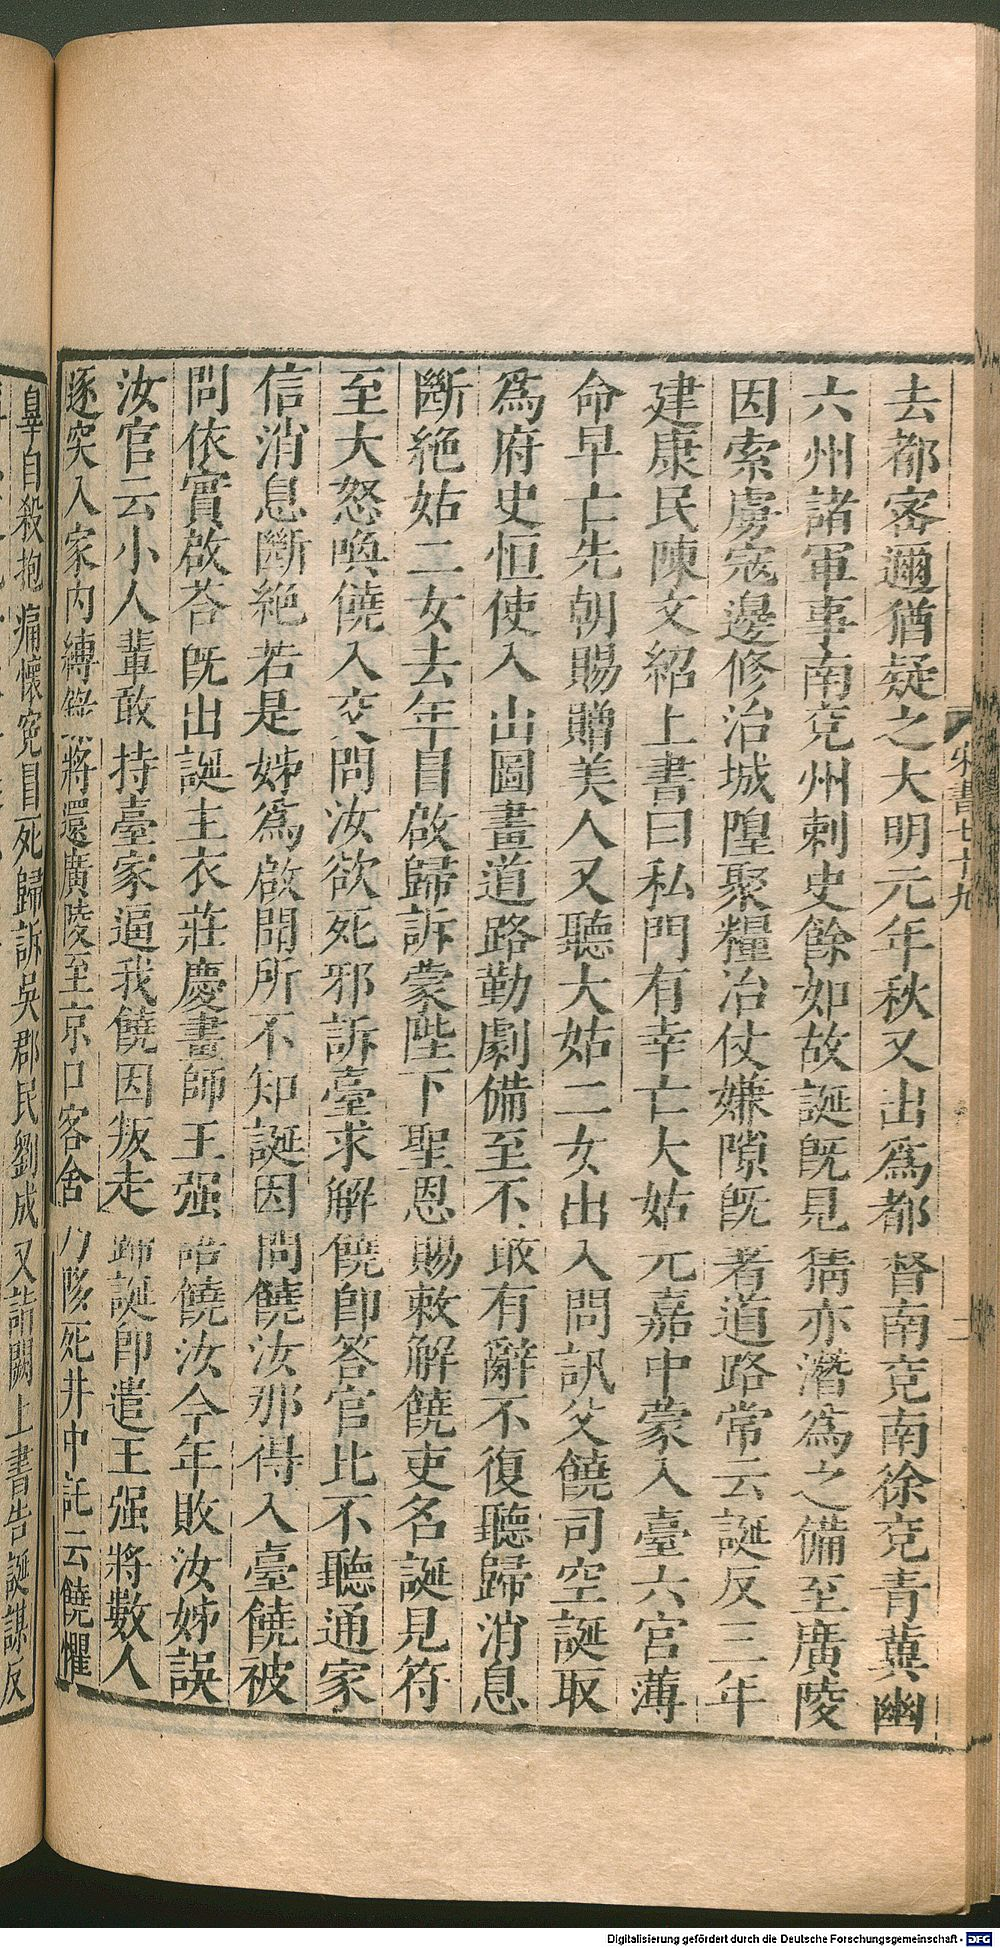 宋書七十九
去都密邇猶疑之大明元年秋又出爲都督南兖南徐兖青冀幽
六州諸軍事南兖州刺史餘如故誕既見猜亦潛爲之備至廣陵
因索虜寇邊修治城隍聚糧治仗嫌隙既著道路常云誕反三年
建康民陳文紹上書曰私門有幸亡大姑元嘉中蒙入臺六宮薄
命早亡先朝賜贈美人又聽大姑二女出入問訊父饒司空誕取
爲府史恒使入山圖畫道路勤劇備至不敢有辭不復聽歸消息
斷絕姑二女去年冐啟歸訴蒙陛下聖恩賜敕解饒吏名誕見符
至大怒喚饒入交問汝欲死邪訴臺求解饒即答官比不聽通家
信消息斷絕若是姊爲啟聞所不知誕因問饒汝那得入臺饒被
問依實啟荅既出誕主衣莊慶畫師王强語饒汝今年敗汝姊誤
汝官云小人輩敢持臺家逼我饒因叛走歸誕即遣王强將數人
逐突入家內縛錄將還廣陵至京口客舍乃陊死井中託云饒懼
辠自殺抱痛懷寃冒死歸訴吳郡民劉成又詣闕上書告誕謀反
Digitalisierung gefördert durch die Deutsche Forschungsgemeinschaft - DFG